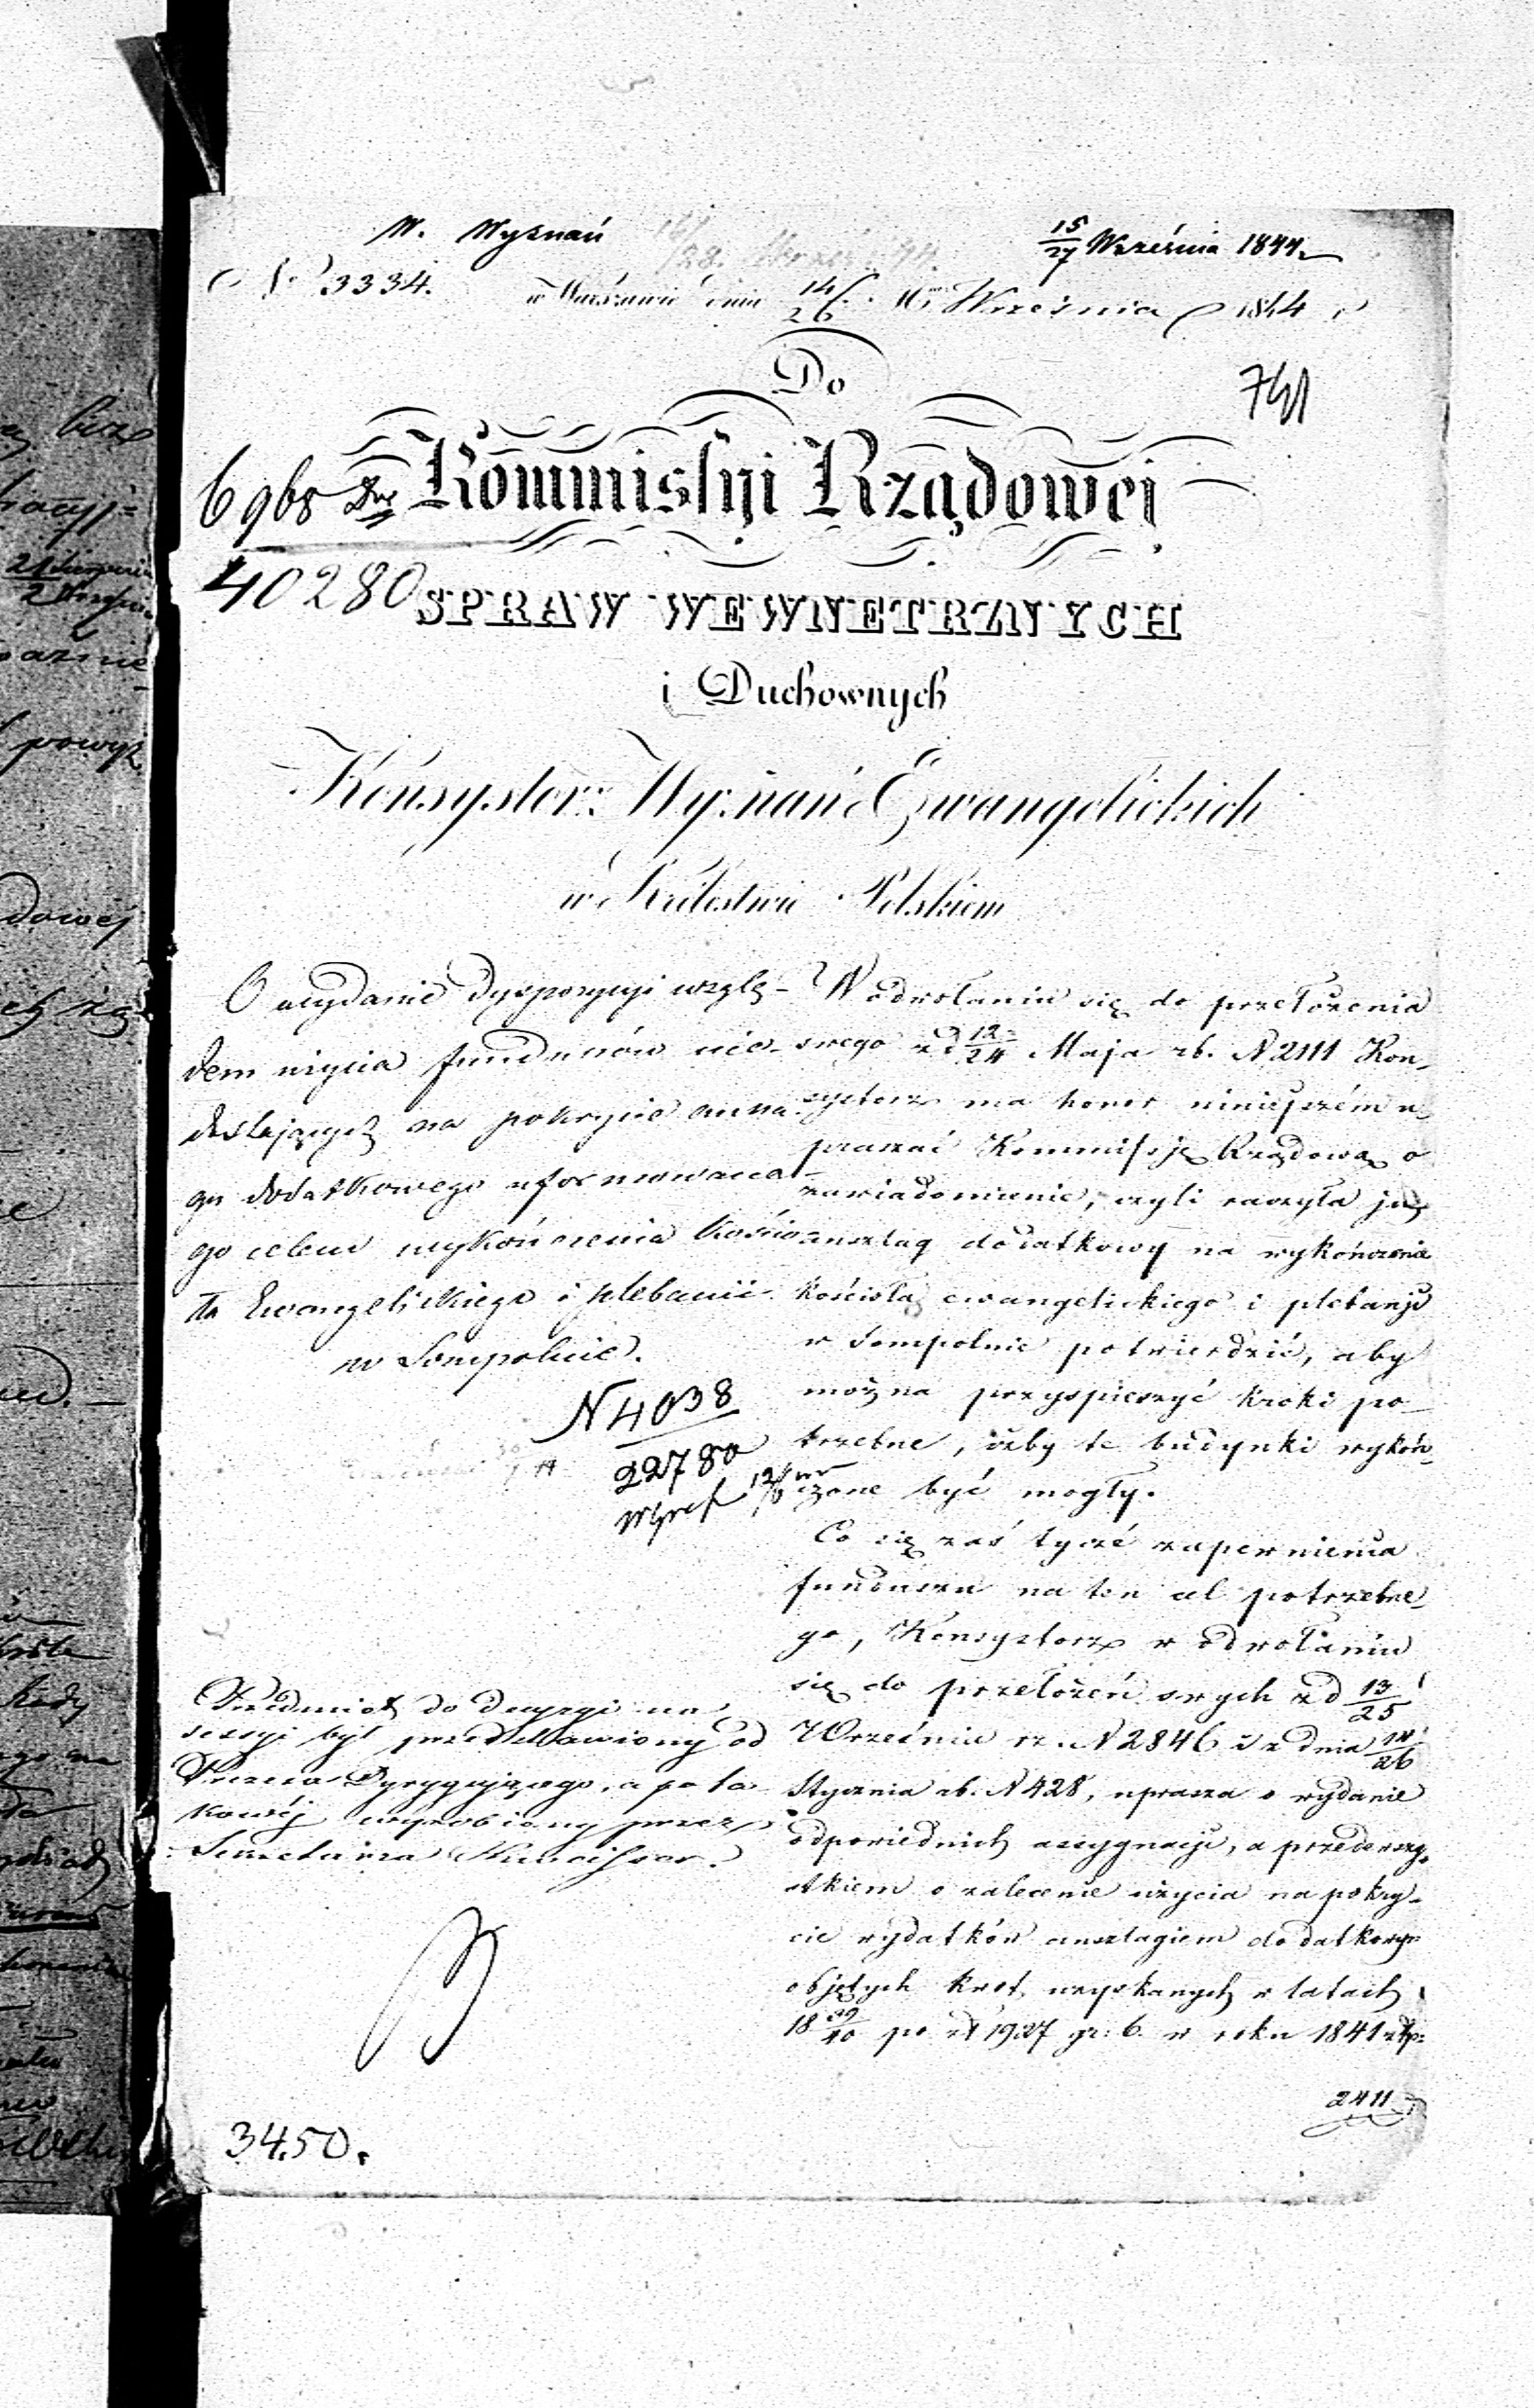 W. Wyznań
15/27 Września 1844
No 3334.
w Warszawie dnia 14/26 Mca Września 1844 r
Do
741
Kommissyi Rządowej
6968
40280
SPRAW WEWNETRZNYCH
i Duchownych
Konsystorz Wyznań Ewangelickich
w Królestwie Polskiem
O wydanie dyspozycyi wzglę-
dem użycia funduszów nie-
dostających na pokrycie ansza
gu dodatkowego uformowane-
go celem wykończenia kościo-
ła Ewangelickiego i plebanii
w Sompolnie.
N 4038
22780
W odwołaniu się do przełożenia
swego z d 12/24 Maja rb. N 2111 Kon-
systorz ma honor niniejszém u-
praszać Kommissję Rządową o
zawiadomienie, czyli raczyła już
anszlag dodatkowy na wykończenie
kościoła ewangelickiego i plebanji
w Sompolnie potwierdzić, aby
można przyspieszyć kroki po-
trzebne, iżby te budynki wykoń-
czone być mogły.
Co się zaś tyczé zapewnienia
funduszu na ten cel potrzebne-
go, Konsystorz w odwołaniu
się do przełożeń swych z d 13/25
Września rz. N 2846 i z dnia 14/26
Stycznia rb. N 428, uprasza o wydanie
odpowiednich assygnacji, a przedewszy-
stkiem o zalecenie użycia na pokry-
cie wydatków anszlagiem dodatkowym
objętych kwot, uzyskanych w latach
18 39/40 po zł 1927 gr: 6. w roku 1841 złp:
2411
Przedmiot do decyzyi na
sessyi był przedstawiony od
Prezesa Dyrygującego, a po ta
kowéj wyrobiony przez
3450.